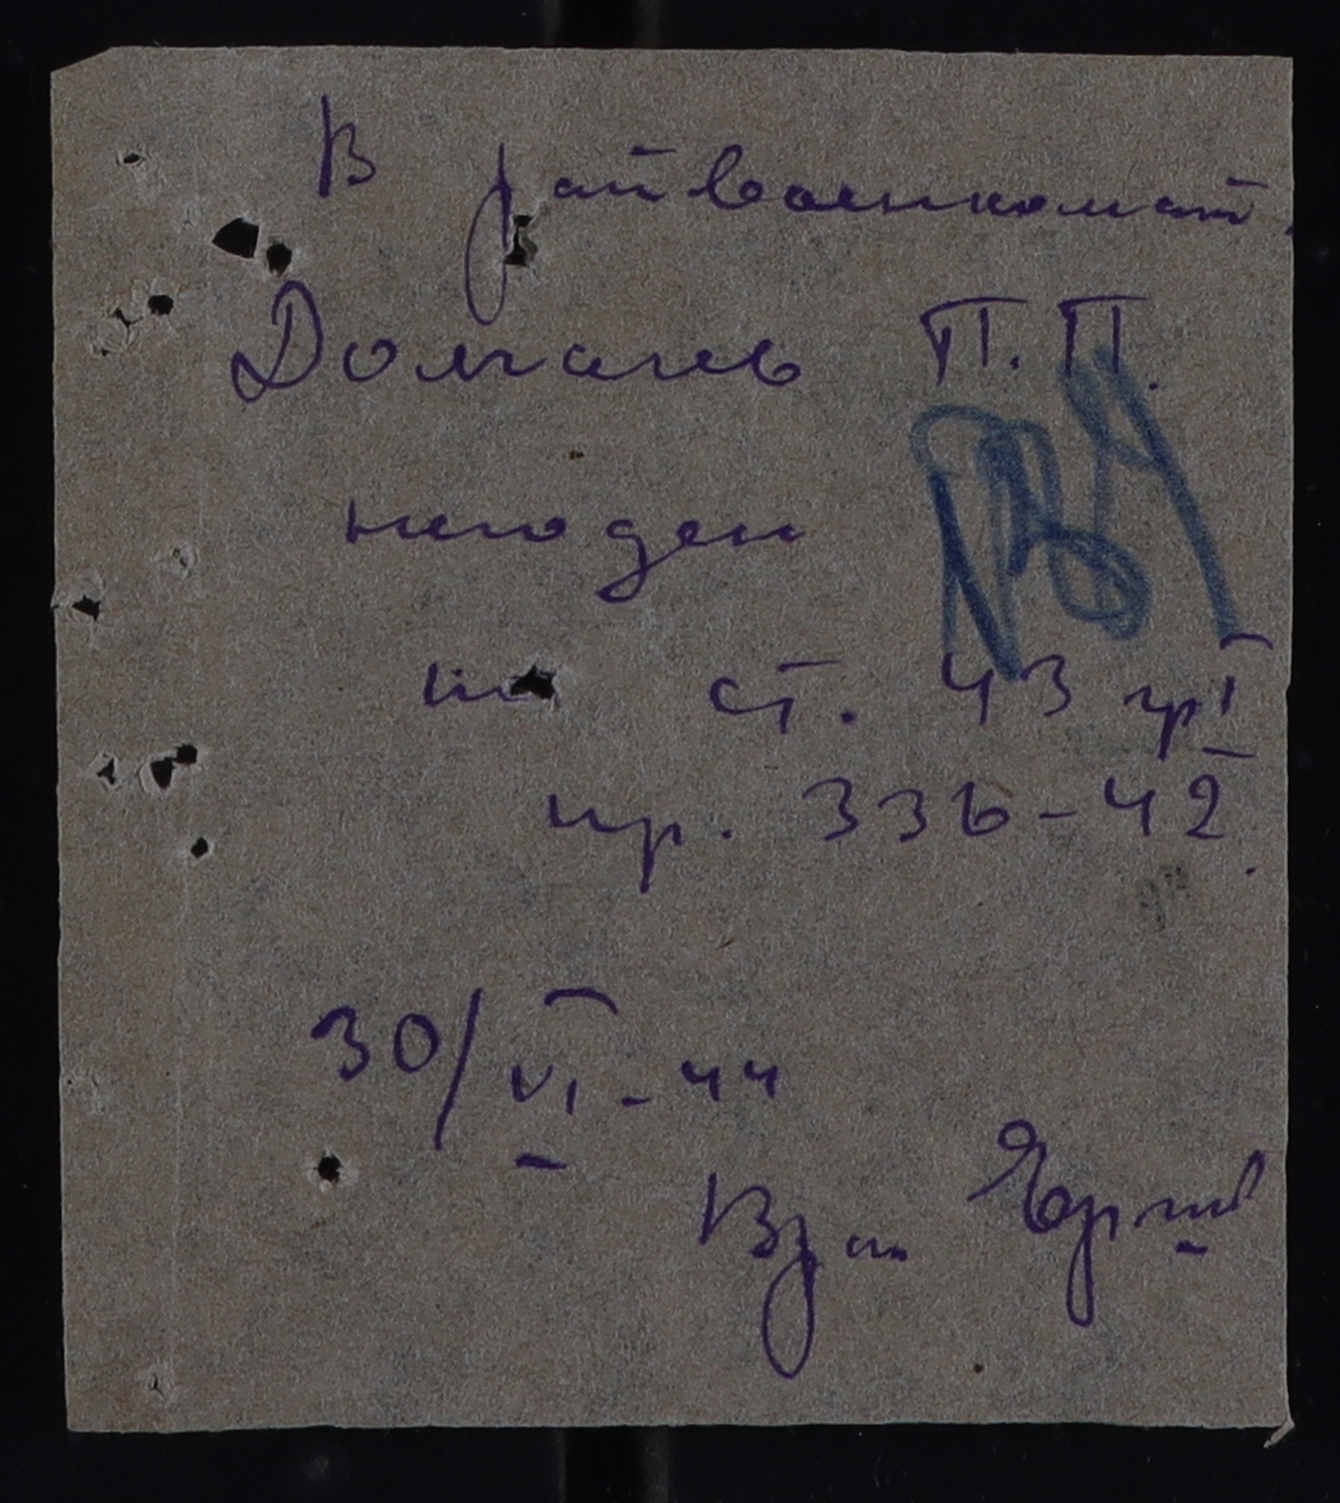 В райвоенкомат.
Долгалев П. П.
негоден
по ст. 43 гр I
пр. 336-42.
30/VI-44
Врач